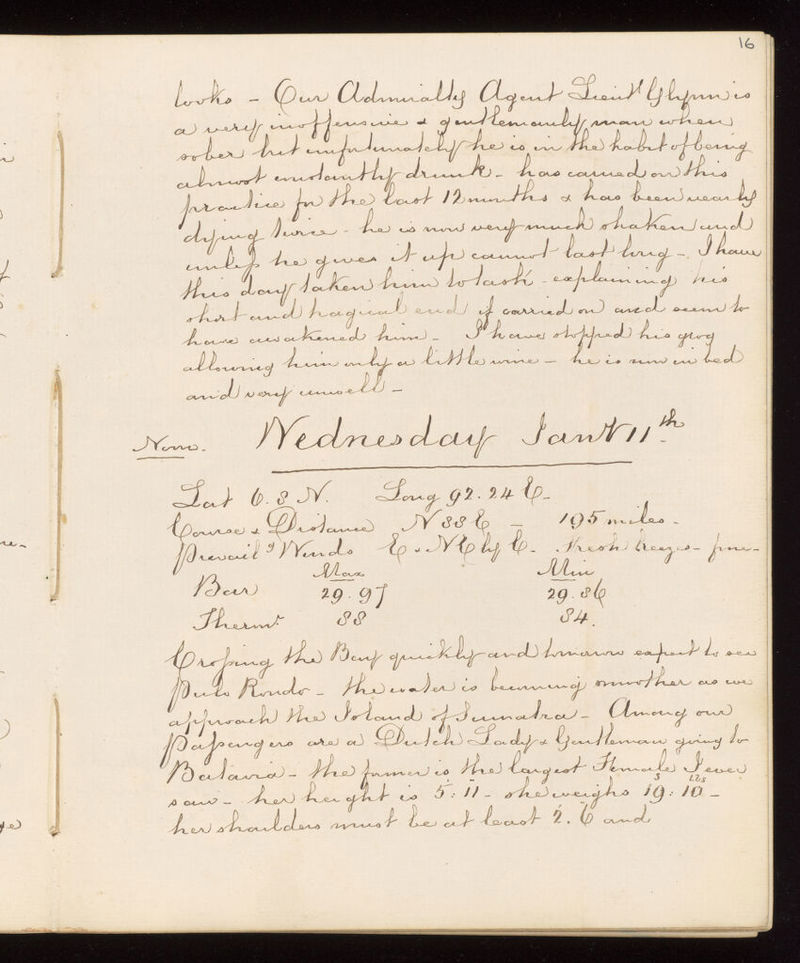 16
looks - Our Admiralty Agent Lieut Glynn is
a very inoffensive & gentlemanly man when
sober but unfortunately he is in the habit of being
almost constantly drunk - has carried on this
practice for the last 12 months & has been nearly
dying twice - he is now very much shaken and
unless he gives it up cannot last long - I have
this day taken him to task - explaining his
short and tragical end if carried on and seem to
have awakened him - I have stopped his grog
allowing him only a little wine - he is now in bed
and very unwell -
Noon. Wednesday Jany 11th
Lat 6.8 N. Long 92.24 E -
Course & Distance N 88 E - 195 miles -
Prevailg Winds E & NE by E - Fresh breezes - fine -
Max Min
Bar 29.97 29.86
Thermr 88 84.
Crossing the Bay quickly and tomorrow expect to see
Pulo Rondo - the water is becoming smoother as we
approach the Island of Sumatra - Among our
Passengers are a Dutch Lady & Gentleman going to
Batavia - the former is the largest Female I ever
saw - her height is 5' : 11" - she weighs 19s : 10lbs -
her shoulders must be at least 2'. 6" and